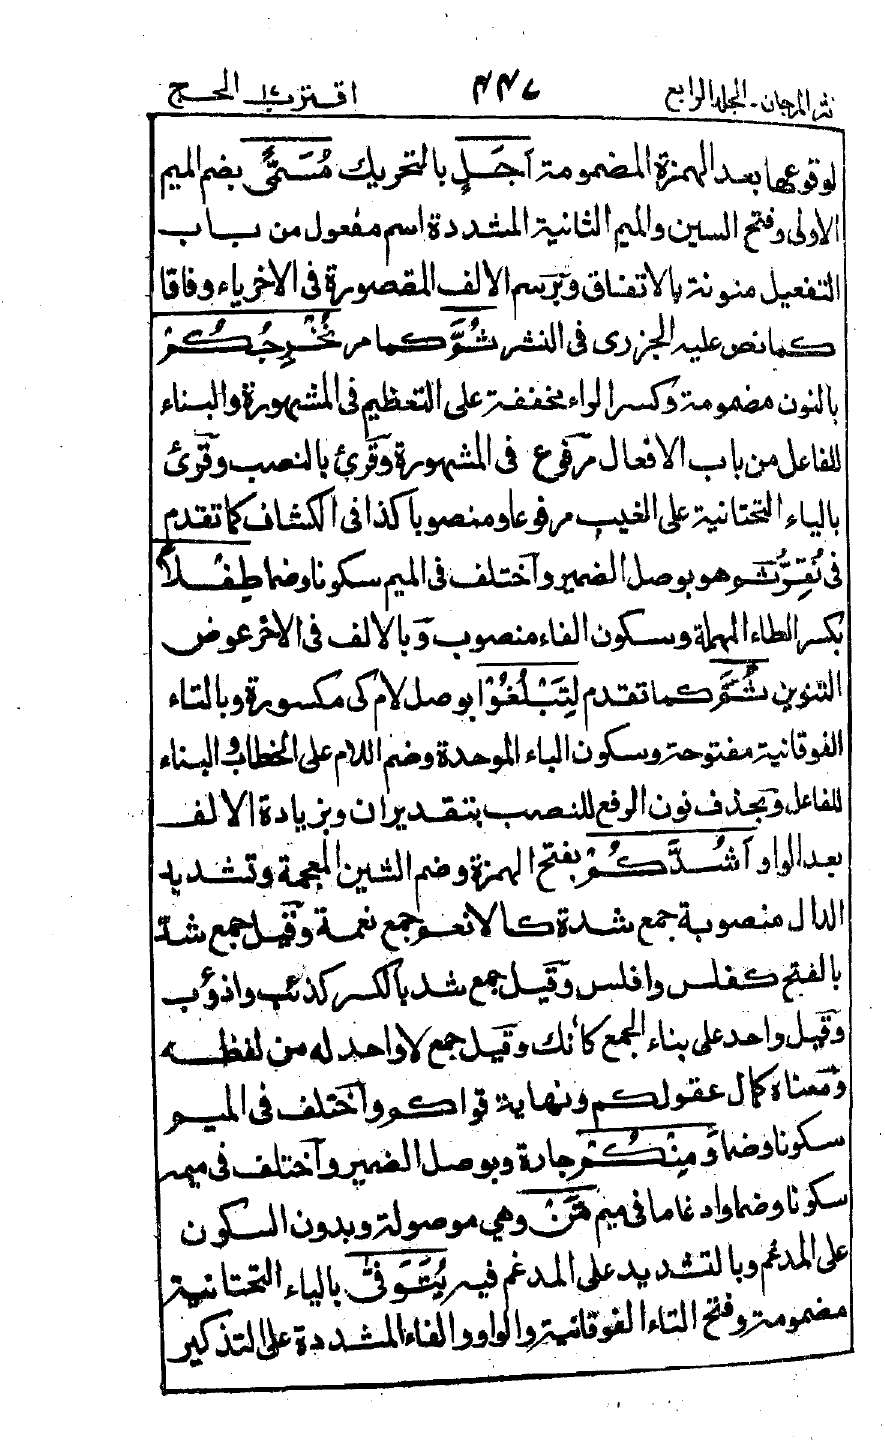 نثر المرجان - المجلد الرابع ٤٤٧ اقترب ١٧ الحج
لوقوعها بعد الهمزة المضمومة أَجَلٍ بالتحريك مُسَمًّى بضم الميم
الاولى وفتح السين والميم الثانية المشددة اسم مفعول من باب
التفعيل منونة بالاتفاق ويرسم الالف المقصورة فى الاخرياء وفاقا
كما نص عليه الجزرى فى النشر ثُمَّ كما مر نُخْرِجُكُمْ
بالنون مضمومة وكسر الراء مخففة على التعظيم فى المشهورة والبناء
للفاعل من باب الافعال مرفوع فى المشهورة وقرئ بالنصب وقرئ
بالياء التحتانية على الغيب مرفوعا ومنصوبا كذا فى الكشاف كما تقدم
فى نُقِرُّ ثم هو بوصل الضمير واختلف فى الميم سكونا وضما طِفْلًا
بكسر الطاء المهملة وسكون الفاء منصوب وبالالف فى الاخر عوض
التنوين ثُمَّ كما تقدم لِتَبْلُغُوْا بوصل لام كى مكسورة وبالتاء
الفوقانية مفتوحة وسكون الباء الموحدة وضم اللام على الخطاب والبناء
للفاعل وبحذف نون الرفع للنصب بتقدير ان وبزيادة الالف
بعد الواو أَشُدَّكُمْ بفتح الهمزة وضم الشين المعجمة وتشديد
الدال منصوبة جمع شدة كالانعم جمع نعمة وقيل جمع شدّ
بالفتح كفلس وافلس وقيل جمع شد بالكسر كذئب واذؤب
وقيل واحد على بناء الجمع كأنك وقيل جمع لا واحد له من لفظه
ومعناه كمال عقولكم ونهاية قواكم واختلف فى الميم
سكونا وضما وَمِنْكُمْ جارة وبوصل الضمير واختلف فى ميمه
سكونا وضما وادغاما فى ميم مَّنْ وهي موصولة وبدون السكون
على المدغم وبالتشديد على المدغم فيه يُتَوَفّٰى بالياء التحتانية
مضمومة وفتح التاء الفوقانية والواو والفاء المشددة على التذكير